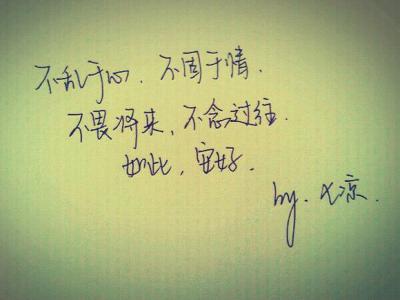 不乱于心．不困于情．
不畏将来，不念过往．
如此，安好．
by．七凉．